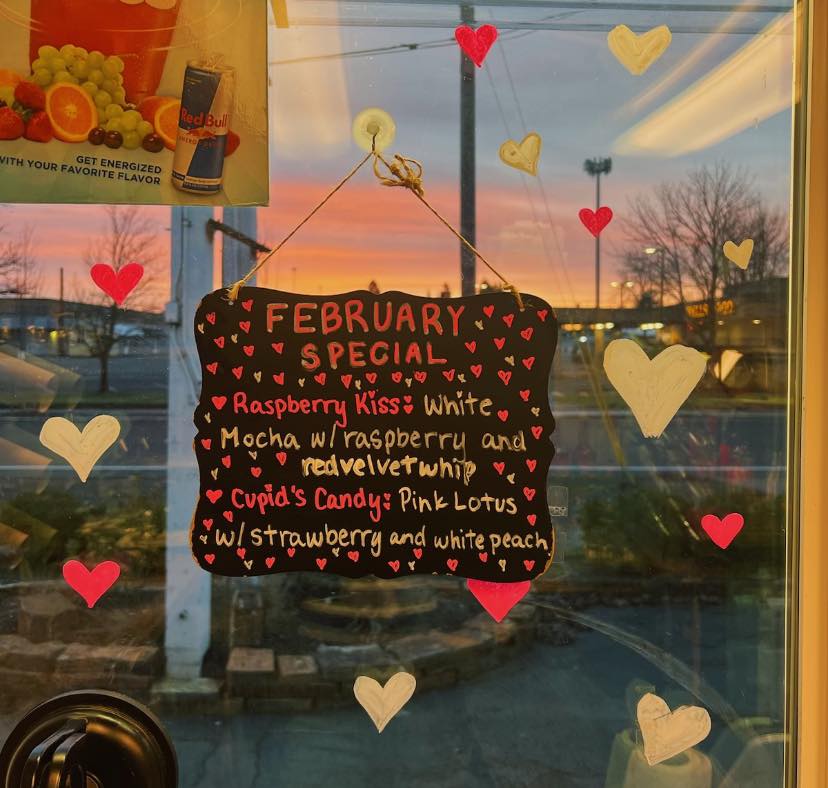 Red Bull
ENERGY DRINK
GET ENERGIZED
WITH YOUR FAVORITE FLAVOR
FEBRUARY
SPECIAL
Raspberry Kiss: White
Mocha w/ raspberry and
redvelvetwhip
Cupid's Candy: Pink Lotus
w/ strawberry and white peach